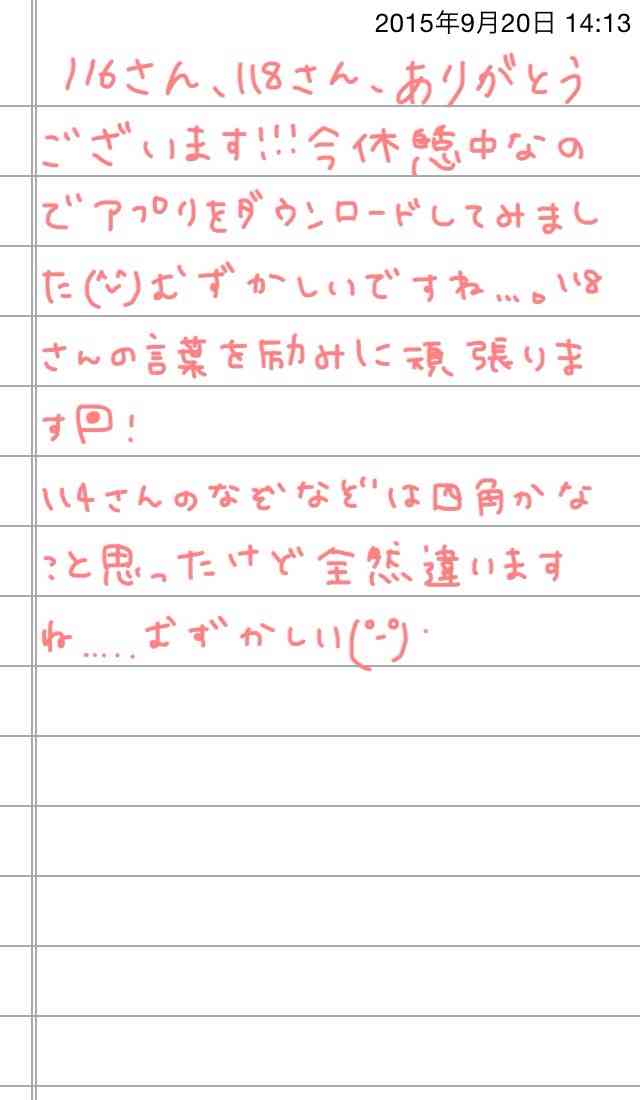 2015年9月20日 14:13
116さん、118さん、ありがとう
ございます!!!今休憩中なの
でアプリをダウンロードしてみまし
た(^ᵕ^)むずかしいですね...。118
さんの言葉を励みに頑張りま
す!
114さんのなぞなぞは四角かな
こと思ったけど全然違います
ね.....むずかしい(°-°)